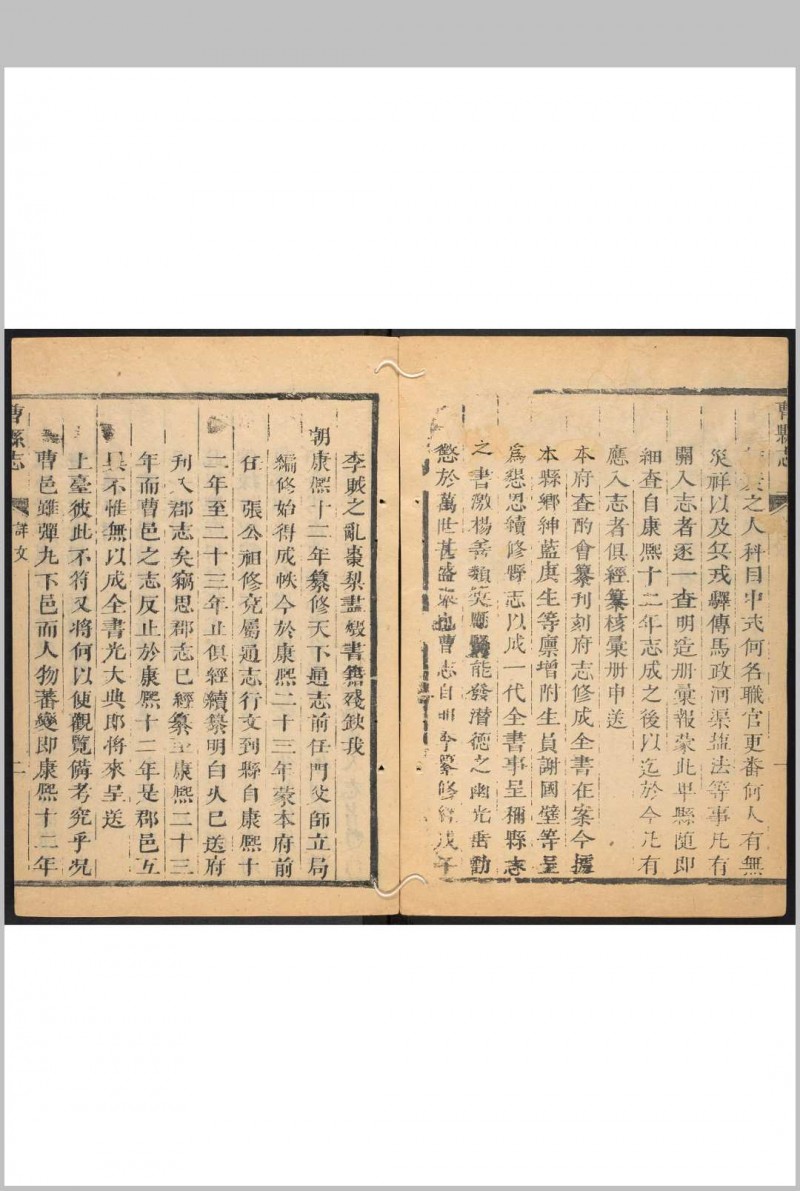 曹縣志
一
之人科目中式何名職官更番何人有無
災祥以及兵戎驛傳馬政河渠鹽法等事凡有
關入志者逐一查明造册彙報蒙此卑縣隨即
細查自康熙十二年志成之後以迄於今凡有
應入志者俱經纂核彙册申送
本府查酌會纂刊刻府志修成全書在案今據
本縣鄉紳藍庚生等廪增附生員謝國璧等呈
爲懇恩續修縣志以成一代全書事呈稱縣志
之書激揚善類能發潜德之幽光衋勸
懲於萬世甚盛也曹志自明季纂修
李賊之亂棗梨盡燬書舊殘缺我
朝康熙十二年纂修天下通志前任門父師立局
編修始得成帙今於康熙二十三年蒙本府前
任 張公祖修克屬通志行文到縣自康熙十
二年至二十三年止俱經續纂明白久已送府
刊入郡志矣竊思郡志已經纂至康熙二十三
年而曹邑之志反止於康熙十二年是郡邑互
異不惟無以成全書光大典即將來呈送
上臺彼此不符又將何以便觀覽備考究乎况
曹邑雖彈丸下邑而人物蕃變即康熙十二年
曹縣志
詳文
二